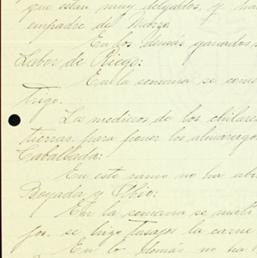 que estan muy delgados, y ha
empadre del
En los demás ganados
Labor de Riego:
En la semana se
trigo.
La medieros de los chilares
tierras, para poner los almácigos
Caballada:
En este ramo no ha
Boyada y Obio:
En la semana se mató
se hizo tasajos la carne
En lo demás no ha